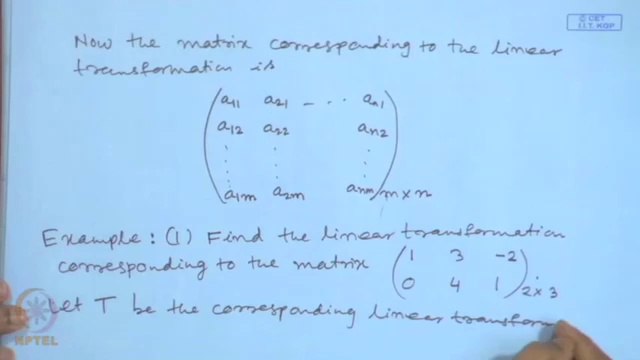 © CET
I.I.T. KGP
Now the matrix corresponding to the linear
transformation is
a11 a21 - . . . an1
a12 a22 an2
a1m a2m anm m×n
Example: (1) Find the linear transformation
corresponding to the matrix
1 3 -2
0 4 1 2×3
Let T be the corresponding linear transform
NPTEL